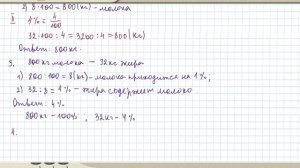 2) 8·100=800(кг) - молока
II
1% = 4/100
32·100:4 = 3200:4 = 800(кг)
Ответ: 800кг.
3. 800кг молока — 32кг жира
1) 800:100=8(кг)-молока приходится на 1%;
2) 32:8=4% - жира содержит молоко
Ответ: 4%
800кг - 100% ; 32кг - 4%
1.